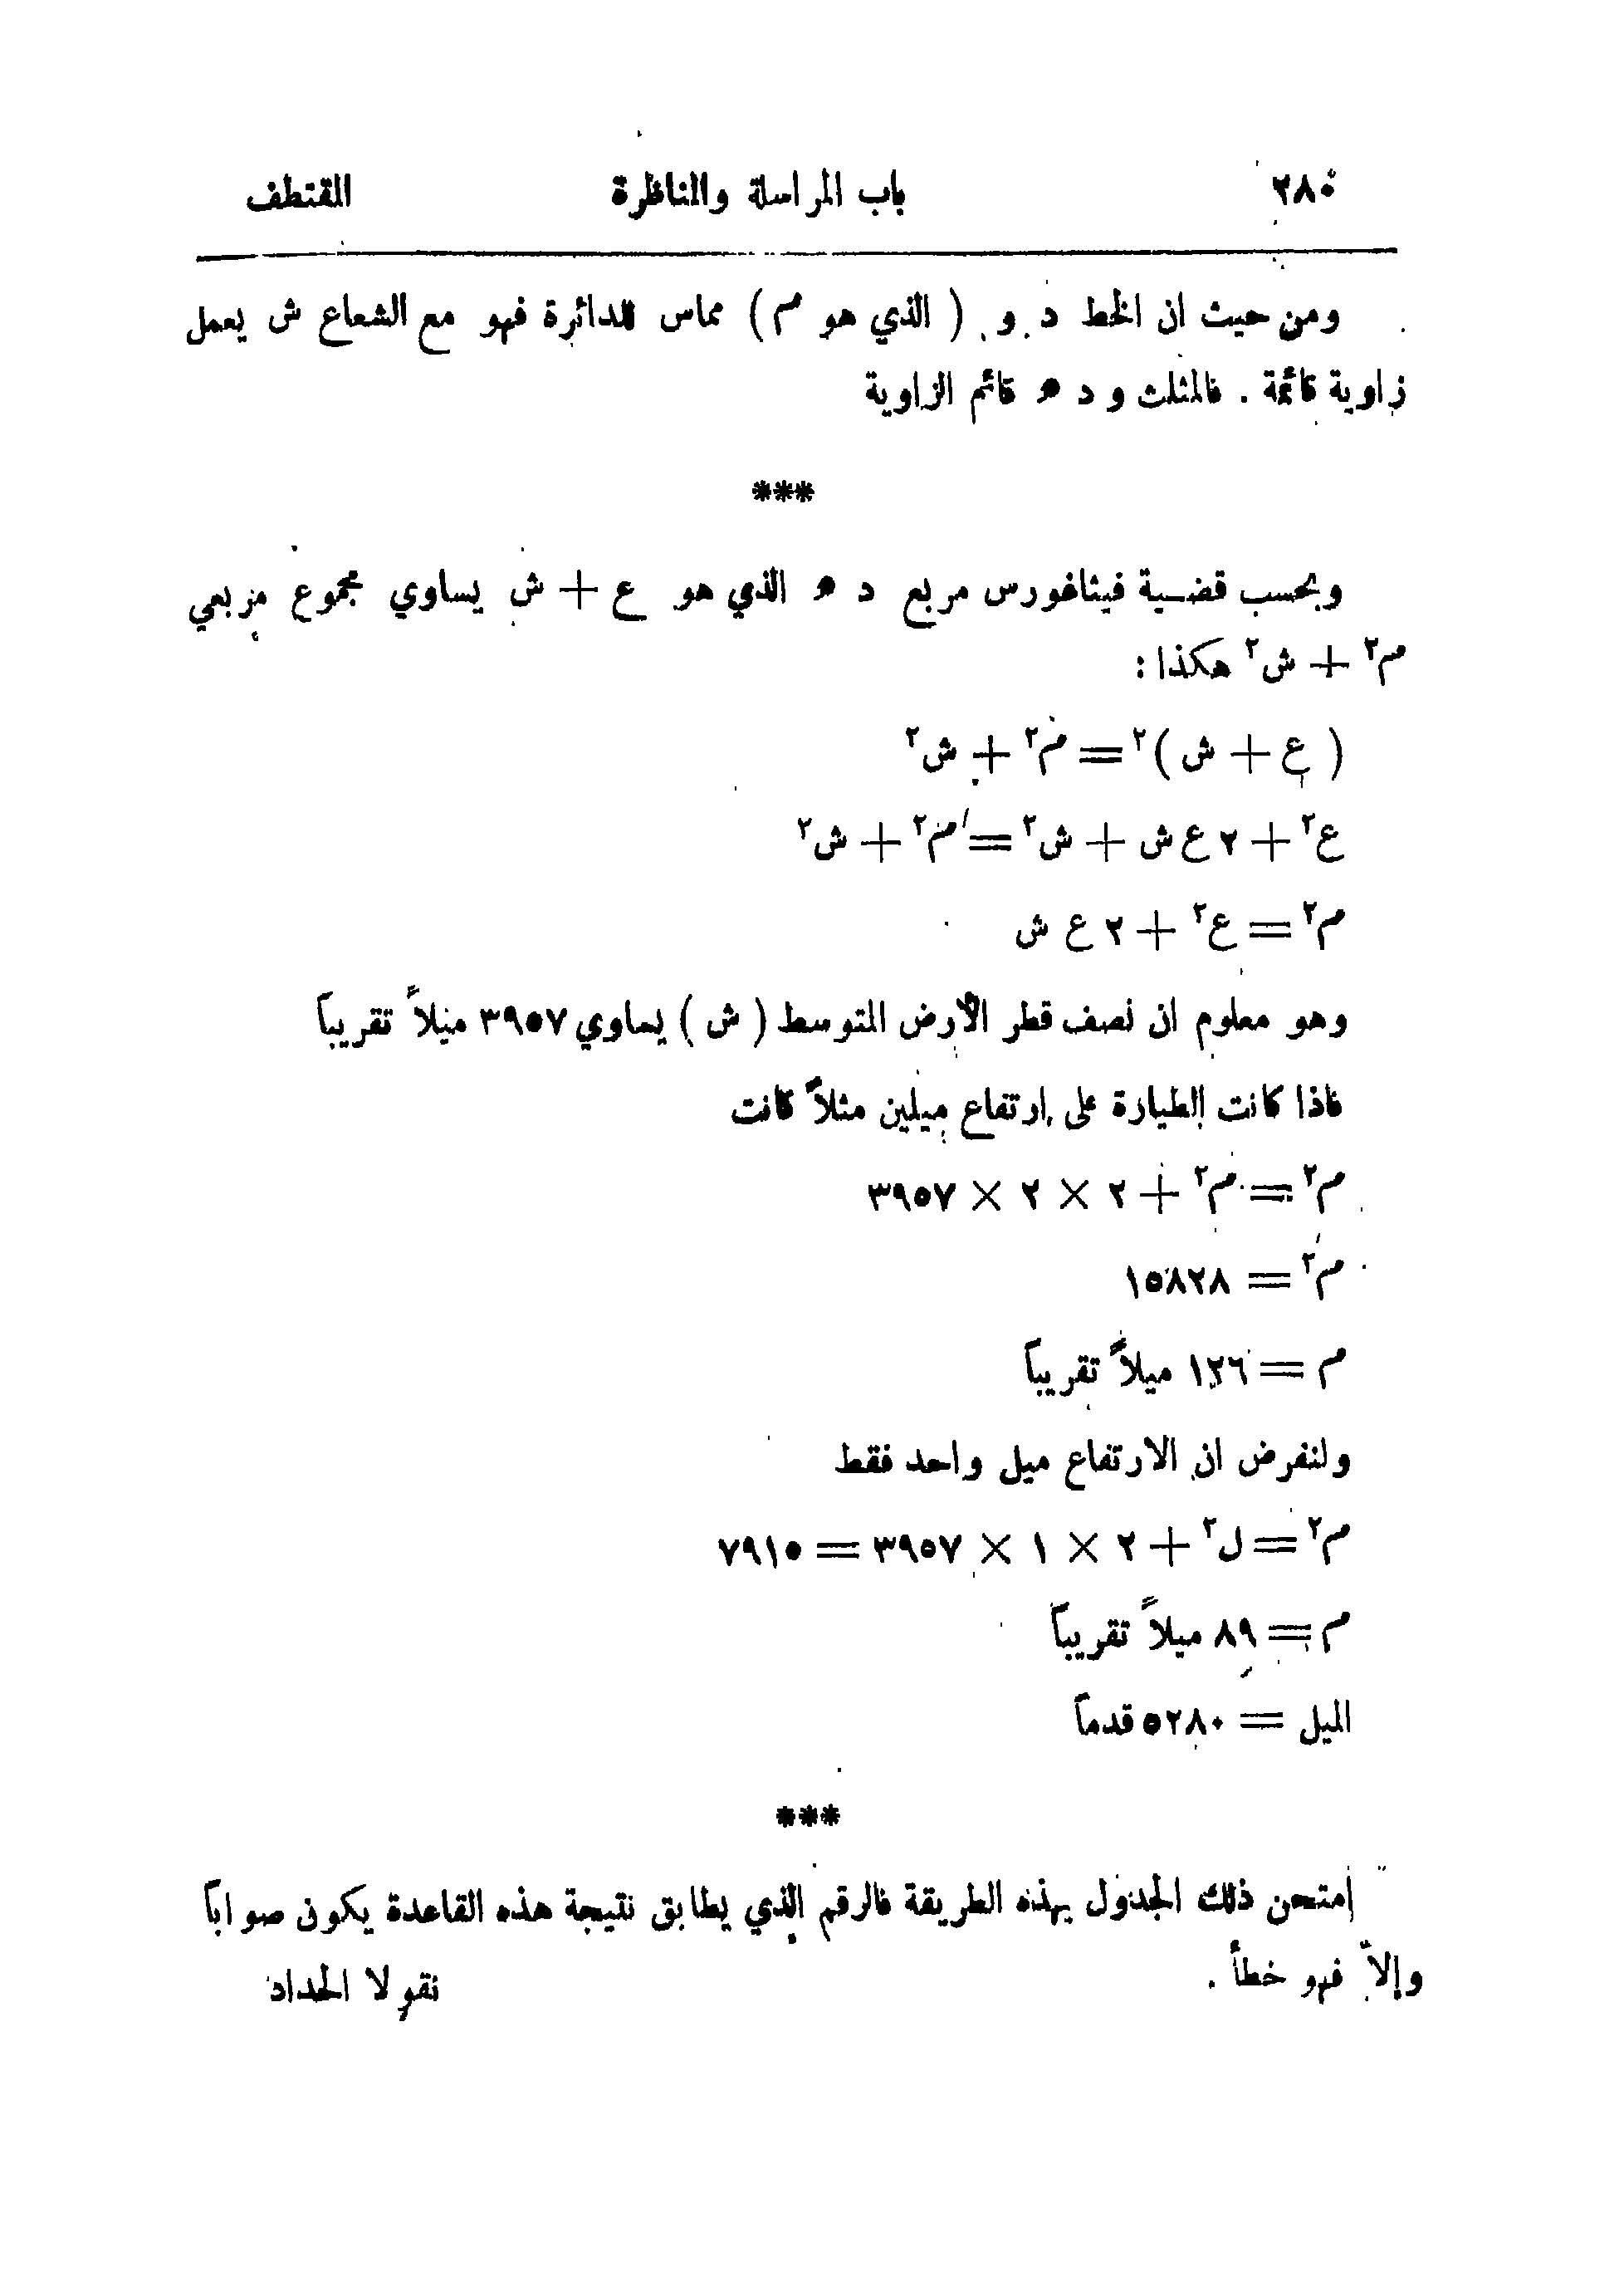 ٢٨٠ باب المراسلة والمناظرة المقتطف
ومن حيث ان الخط د و ( الذي هو م ) مماس للدائرة فهو مع الشعاع ش يعمل
زاوية قائمة . فالمثلث و د ه قائم الزاوية
***
وبحسب قضية فيثاغورس مربع د ه الذي هو ع + ش يساوي مجموع مربعي
م٢ + ش٢ هكذا :
( ع + ش )٢ = م٢ + ش٢
ع٢ + ٢ ع ش + ش٢ = م٢ + ش٢
م٢ = ع٢ + ٢ ع ش
وهو معلوم ان نصف قطر الأرض المتوسط ( ش ) يساوي ٣٩٥٧ ميلاً تقريباً
فاذا كانت الطيارة على ارتفاع ميلين مثلاً كانت
م٢ = م٢ + ٢ × ٢ × ٣٩٥٧
م٢ = ١٥٨٢٨
م = ١٢٦ ميلاً تقريباً
ولنفرض ان الارتفاع ميل واحد فقط
م٢ = ل٢ + ٢ × ١ × ٣٩٥٧ = ٧٩١٥
م = ٨٩ ميلاً تقريباً
الميل = ٥٢٨٠ قدماً
***
إمتحن ذلك الجدول بهذه الطريقة فالرقم الذي يطابق نتيجة هذه القاعدة يكون صواباً
وإلاّ فهو خطأ .
نقولا الحداد